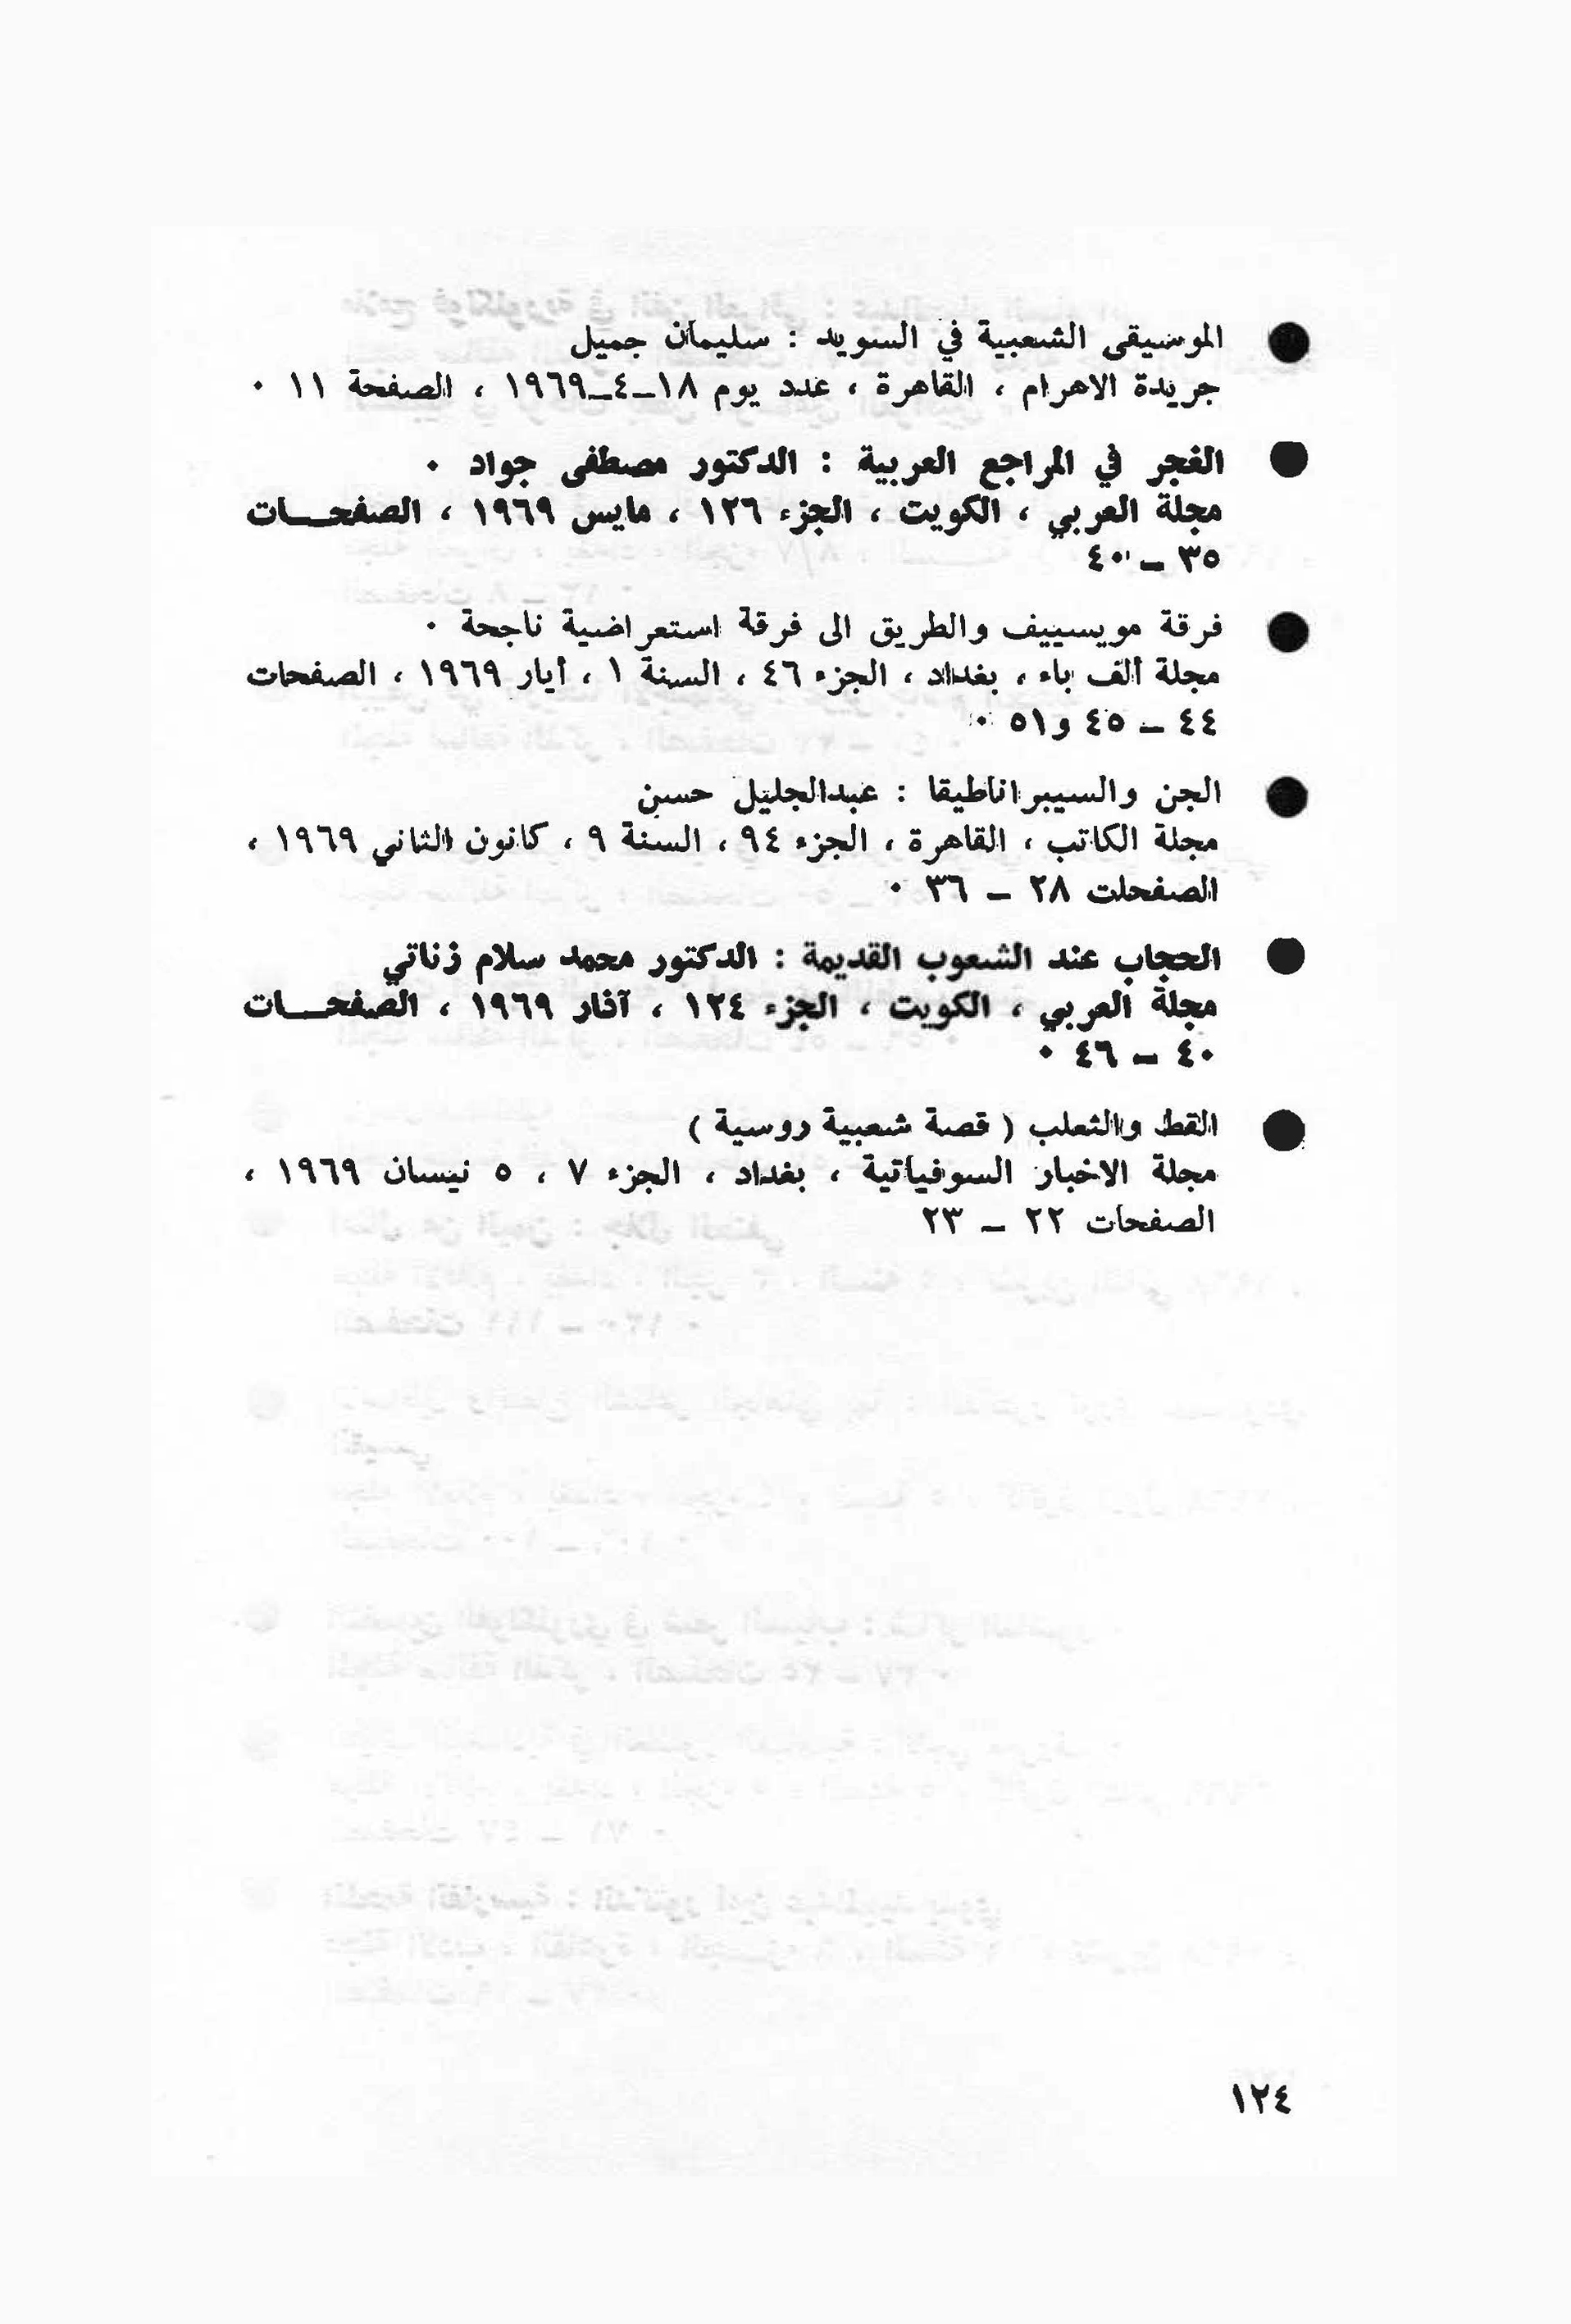 ● الموسيقى الشعبية في السويد : سليمان جميل
جريدة الاهرام ، القاهرة ، عدد يوم ١٨_٤_١٩٦٩ ، الصفحة ١١ ٠
● الغجر في المراجع العربية : الدكتور مصطفى جواد ٠
مجلة العربي ، الكويت ، الجزء ١٢٦ ، مايس ١٩٦٩ ، الصفحــات
٣٥ _ ٤٠
● فرقة مويسييف والطريق الى فرقة استعراضية ناجحة ٠
مجلة ألف باء ، بغداد ، الجزء ٤٦ ، السنة ١ ، أيار ١٩٦٩ ، الصفحات
٤٤ _ ٤٥ و٥١ ٠
● الجن والسيبراناطيقا : عبدالجليل حسن
مجلة الكاتب ، القاهرة ، الجزء ٩٤ ، السنة ٩ ، كانون الثاني ١٩٦٩ ،
الصفحات ٢٨ _ ٣٦ ٠
● الحجاب عند الشعوب القديمة : الدكتور محمد سلام زناتي
مجلة العربي ، الكويت ، الجزء ١٢٤ ، آذار ١٩٦٩ ، الصفحــات
٤٠ _ ٤٦ ٠
● القط والثعلب ( قصة شعبية روسية )
مجلة الاخبار السوفياتية ، بغداد ، الجزء ٧ ، ٥ نيسان ١٩٦٩ ،
الصفحات ٢٢ _ ٢٣
١٢٤